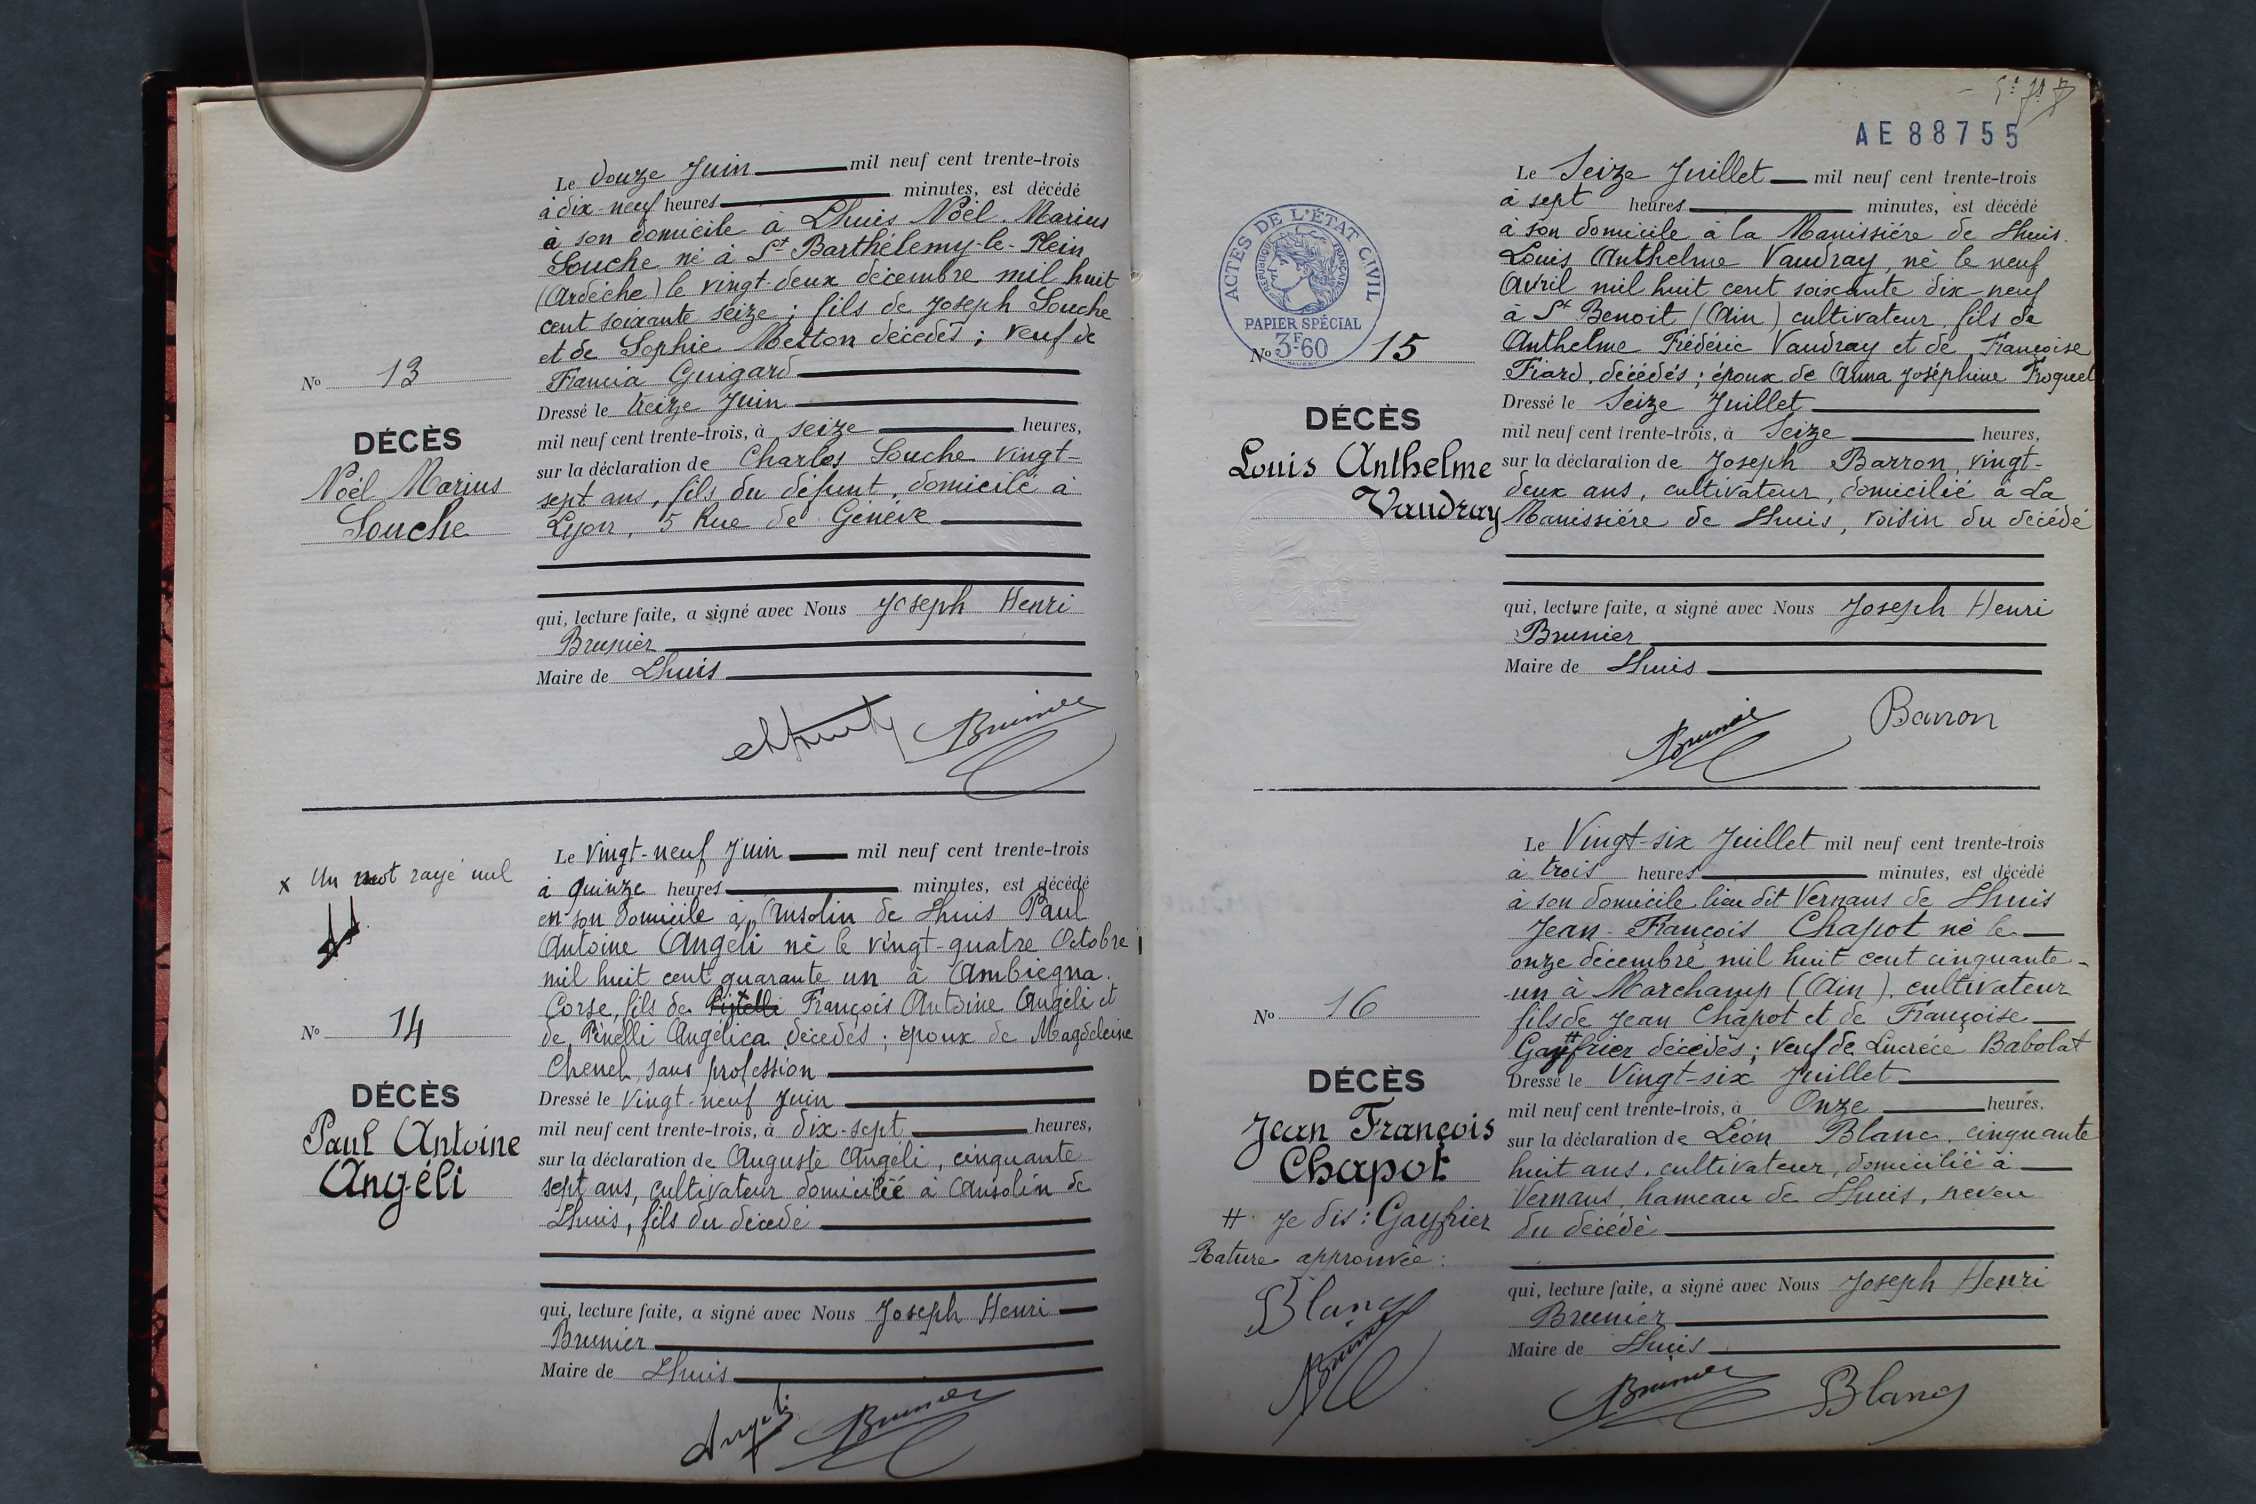 Le douze Juin mil neuf cent trente-trois
à dix-neuf heures minutes, est décédé
à son domicile à Lhuis Noël Marius
Souche né à St Barthélemy-le-Plein
(Ardèche) le vingt-deux décembre mil huit
cent soixante seize ; fils de Joseph Souche
et de Sophie décédés ; veuf de
Dressé le treize Juin
mil neuf cent trente-trois, à seize heures,
sur la déclaration de Charles Souche vingt-
sept ans, fils du défunt, domicilé à
Lyon, 5 Rue de Genève
qui, lecture faite, a signé avec Nous Joseph Henri
Brunier
Maire de Lhuis
No 13
DÉCÈS
Noël Marius
Souche
Brunier
Le vingt-neuf Juin mil neuf cent trente-trois
à quinze heures minutes, est décédé
en son domicile à Ansolin de Lhuis Paul
Antoine Angéli né le vingt-quatre Octobre
mil huit cent quarante un à Ambiegna.
Corse, fils de François Antoine Angéli et
de Pénelli Angélica décédés ; époux de Magdeleine
sans profession
Dressé le vingt-neuf Juin
mil neuf cent trente-trois, à dix-sept heures,
sur la déclaration de Auguste Angéli, cinquante
sept ans, cultivateur domicilié à Ansolin de
Lhuis, fils du décédé
qui, lecture faite, a signé avec Nous Joseph Henri
Brunier
Maire de Lhuis
x Un mot rayé nul
No 14
DÉCÈS
Paul Antoine
Angéli
Angeli Brunier
AE 88755
Le Seize Juillet mil neuf cent trente-trois
à sept heures minutes, est décédé
à son domicile à la Manissière de Lhuis.
Louis Anthelme Vaudray, né le neuf
Avril mil huit cent soixante dix-neuf
à St Benoit (Ain) cultivateur, fils de
Anthelme Frédéric Vaudray et de Françoise
Fiard, décédés ; époux de Anna Joséphine Froquet
Dressé le Seize Juillet
mil neuf cent trente-trois, à Seize heures,
sur la déclaration de Joseph Barron, vingt-
deux ans, cultivateur, domicilié à La
Manissière de Lhuis, voisin du décédé
qui, lecture faite, a signé avec Nous Joseph Henri
Brunier
Maire de Lhuis
ACTES DE L'ÉTAT CIVIL
RÉPUBLIQUE FRANÇAISE
PAPIER SPÉCIAL
3F-60
No 15
DÉCÈS
Louis Anthelme
Vaudray
Brunier Barron
Le Vingt-six Juillet mil neuf cent trente-trois
à trois heures minutes, est décédé
à son domicile lieu dit Vernans de Lhuis
Jean-François Chapot né le
onze décembre mil huit cent cinquante-
un à Marchamp (Ain). cultivateur
fils de Jean Chapot et de Françoise
décédés ; veuf de Lucrèce Babolat
Dressé le Vingt-six Juillet
mil neuf cent trente-trois, à Onze heures,
sur la déclaration de Léon Blanc, cinquante
huit ans, cultivateur, domicilié à
Vernans, hameau de Lhuis, neveu
du décédé
qui, lecture faite, a signé avec Nous Joseph Henri
Brunier
Maire de Lhuis
No 16
DÉCÈS
Jean François
Chapot
# je dis : Gayfrier
Rature approuvée :
Blanc
Brunier
Brunier Blanc